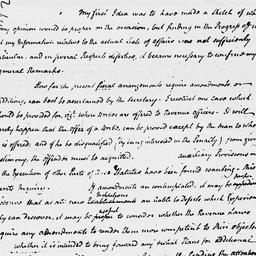 My first Idea was to have made a Sketch of wh
my opinion would be proper on the occasion, but finding in the Progress of
that my Information relative to the actual State of affairs was not sufficiently
and in several Respects defective, it became necessary to confine my
general Remarks.
How far the present fiscal arrangements require amendments or
additions, can best be ascertained by the Secretary. I recollect one Case which
should be provided for, viz where bribes are offered to Revenue officers. It will
rarely happen that the offer of a bribe, can be proved except by the man to who
is offered; and if he be disqualified (by being interested in the Penalty) from giv
testimony, the offender must be acquitted. auxiliary Provisions
the Execution of other Parts of Statutes have been found wanting; this
Inquiries. If amendments are contemplated, it may be
that as all new Establishments are liable to Defects which Experience
can discover, it may be useful to consider whether the Revenue Laws
require any amendments to render them more competent to their objects
Whether it is intended to bring forward any Plans for additional
leading the attention